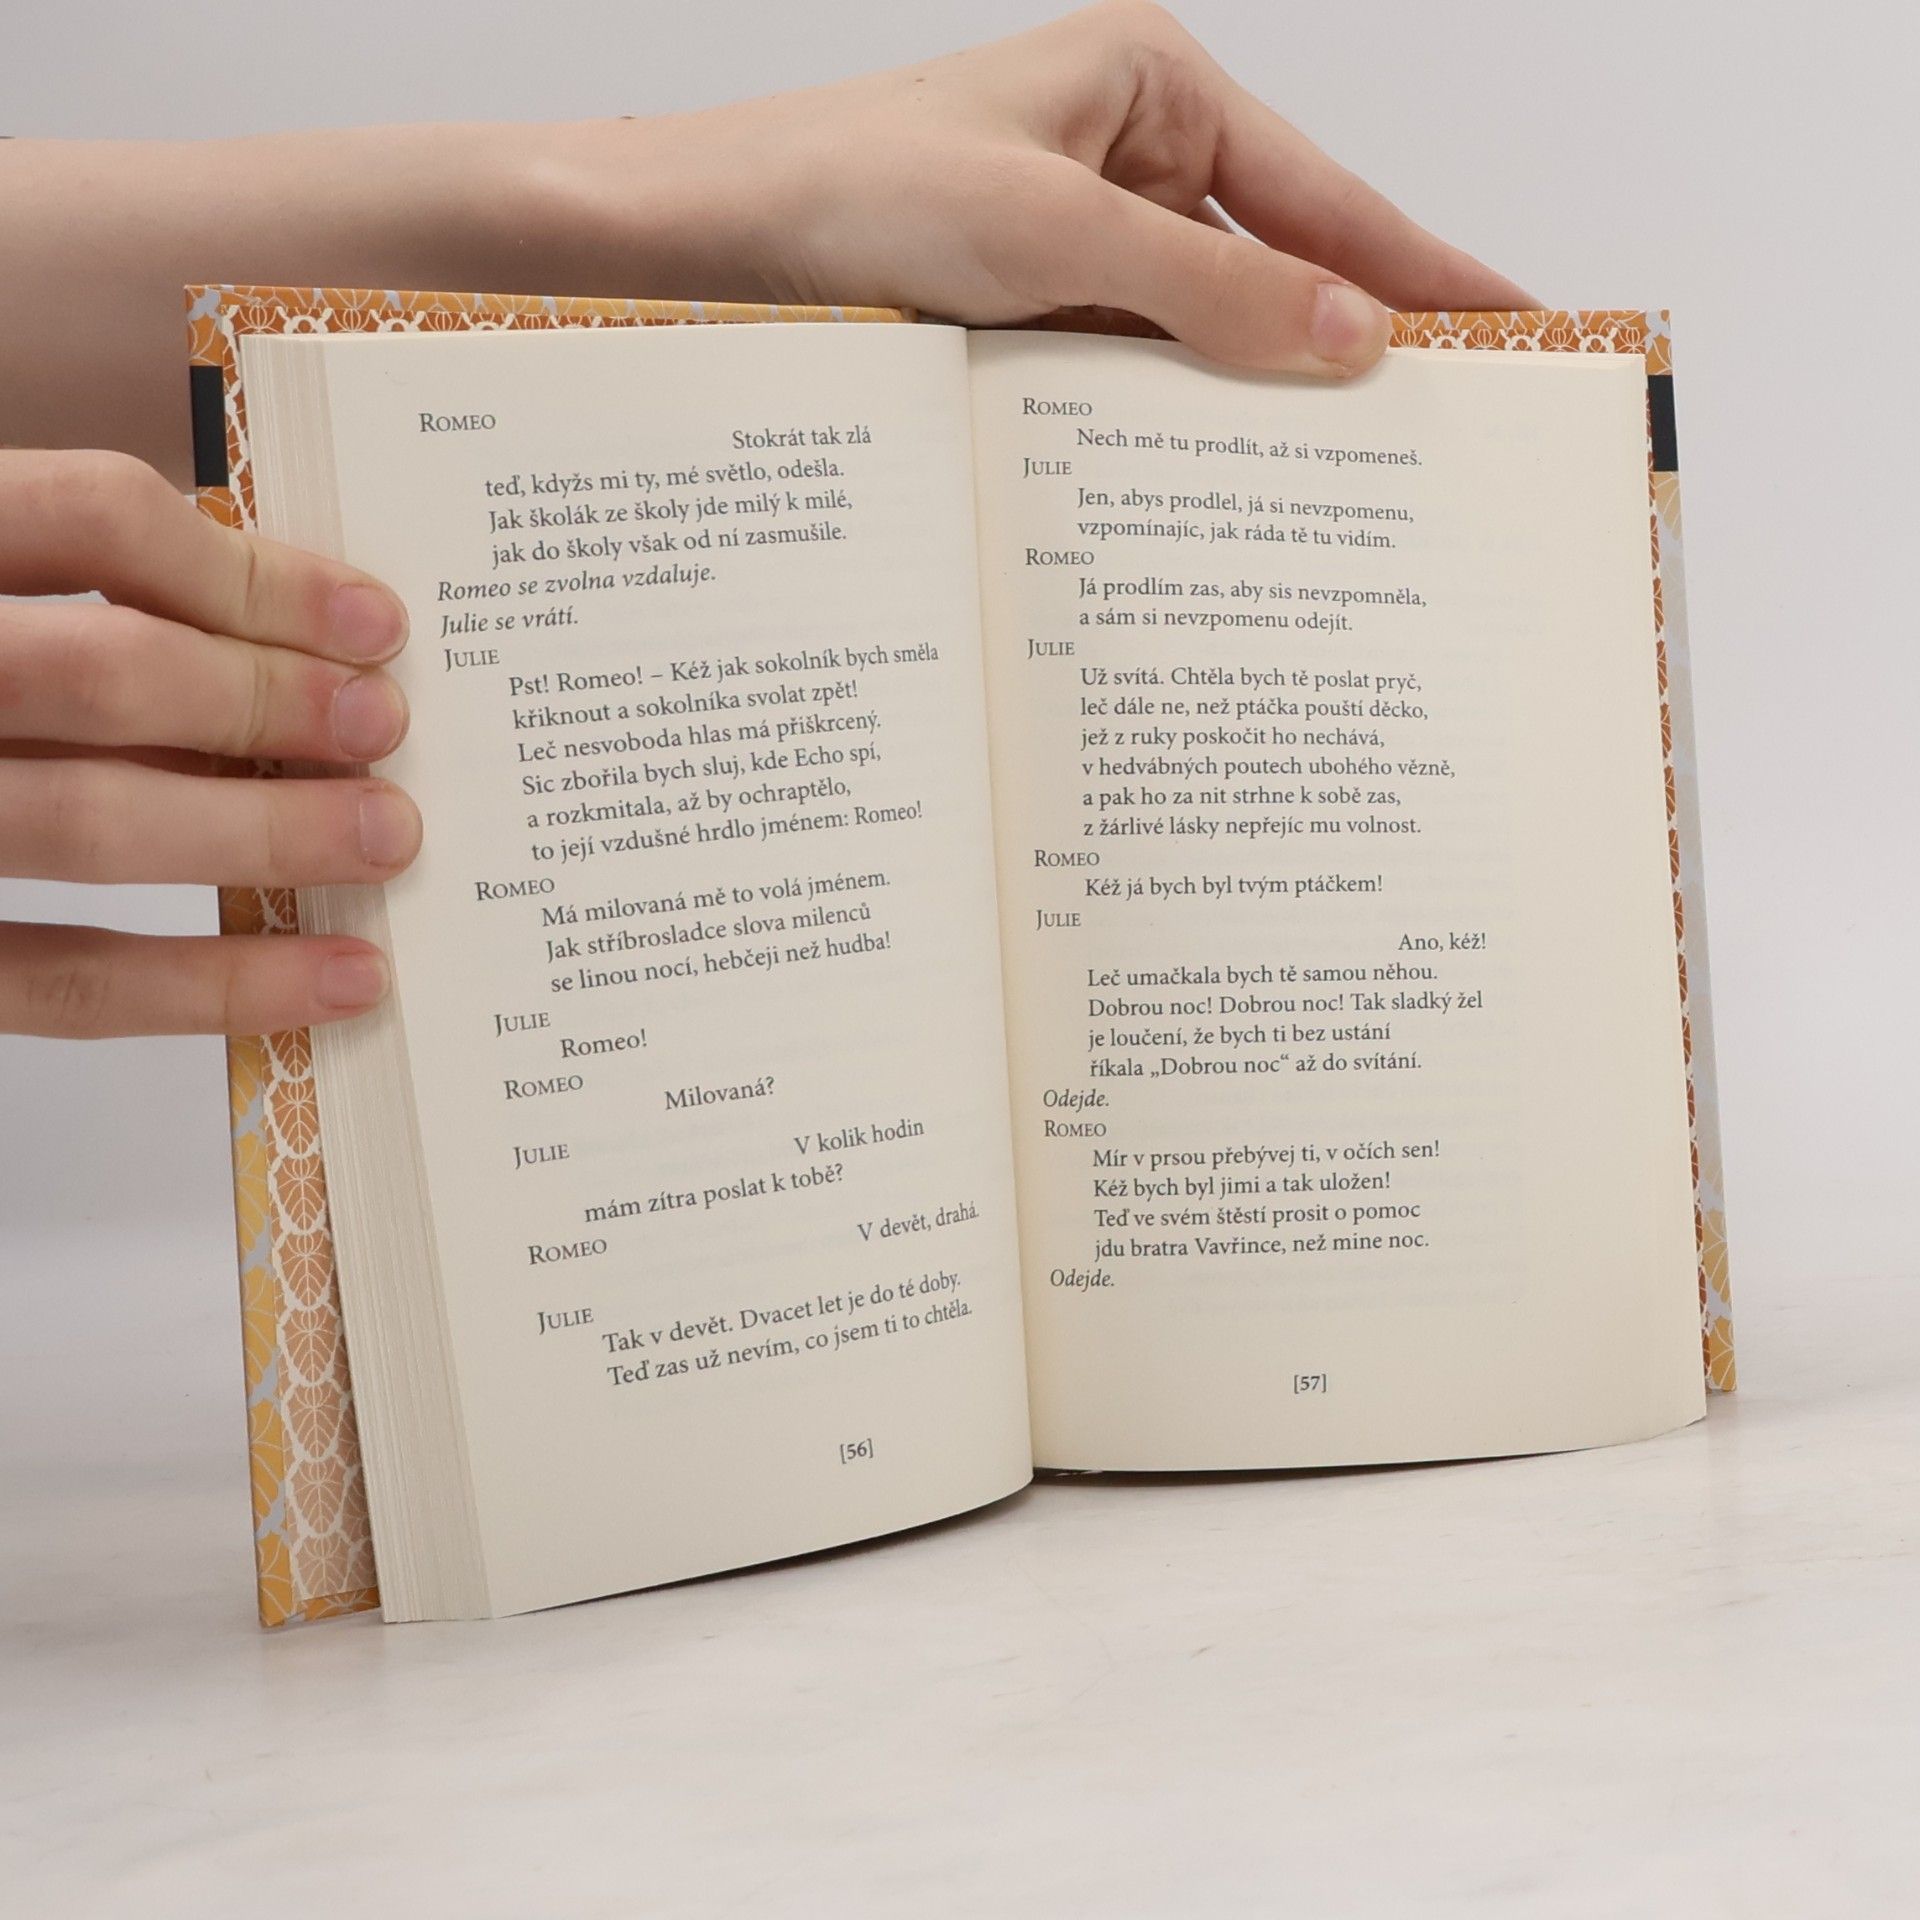 ROMEO
Stokrát tak zlá
teď, kdyžs mi ty, mé světlo, odešla.
Jak školák ze školy jde milý k milé,
jak do školy však od ní zasmušile.
Romeo se zvolna vzdaluje.
Julie se vrátí.
JULIE
Pst! Romeo! – Kéž jak sokolník bych směla
křiknout a sokolníka svolat zpět!
Leč nesvoboda hlas má přiškrcený.
Sic zbořila bych sluj, kde Echo spí,
a rozkmitala, až by ochraptělo,
to její vzdušné hrdlo jménem: Romeo!
ROMEO
Má milovaná mě to volá jménem.
Jak stříbrosladce slova milenců
se linou nocí, hebčeji než hudba!
JULIE
Romeo!
ROMEO
Milovaná?
JULIE
V kolik hodin
mám zítra poslat k tobě?
ROMEO
V devět, drahá.
JULIE
Tak v devět. Dvacet let je do té doby.
Teď zas už nevím, co jsem ti to chtěla.
[56]
ROMEO
Nech mě tu prodlít, až si vzpomeneš.
JULIE
Jen, abys prodlel, já si nevzpomenu,
vzpomínajíc, jak ráda tě tu vidím.
ROMEO
Já prodlím zas, aby sis nevzpomněla,
a sám si nevzpomenu odejít.
JULIE
Už svítá. Chtěla bych tě poslat pryč,
leč dále ne, než ptáčka pouští děcko,
jež z ruky poskočit ho nechává,
v hedvábných poutech ubohého vězně,
a pak ho za nit strhne k sobě zas,
z žárlivé lásky nepřejíc mu volnost.
ROMEO
Kéž já bych byl tvým ptáčkem!
JULIE
Ano, kéž!
Leč umačkala bych tě samou něhou.
Dobrou noc! Dobrou noc! Tak sladký žel
je loučení, že bych ti bez ustání
říkala „Dobrou noc“ až do svítání.
Odejde.
ROMEO
Mír v prsou přebývej ti, v očích sen!
Kéž bych byl jimi a tak uložen!
Teď ve svém štěstí prosit o pomoc
jdu bratra Vavřince, než mine noc.
Odejde.
[57]